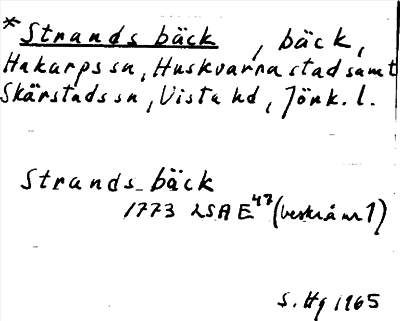 *Strands bäck, bäck,
Hakarps sn, Huskvarna stad samt
Skärstads sn, Vista hd, Jönk. l.
Strands bäck
1773 LSA E47 (beskr å nr 1)
S. Hg 1965